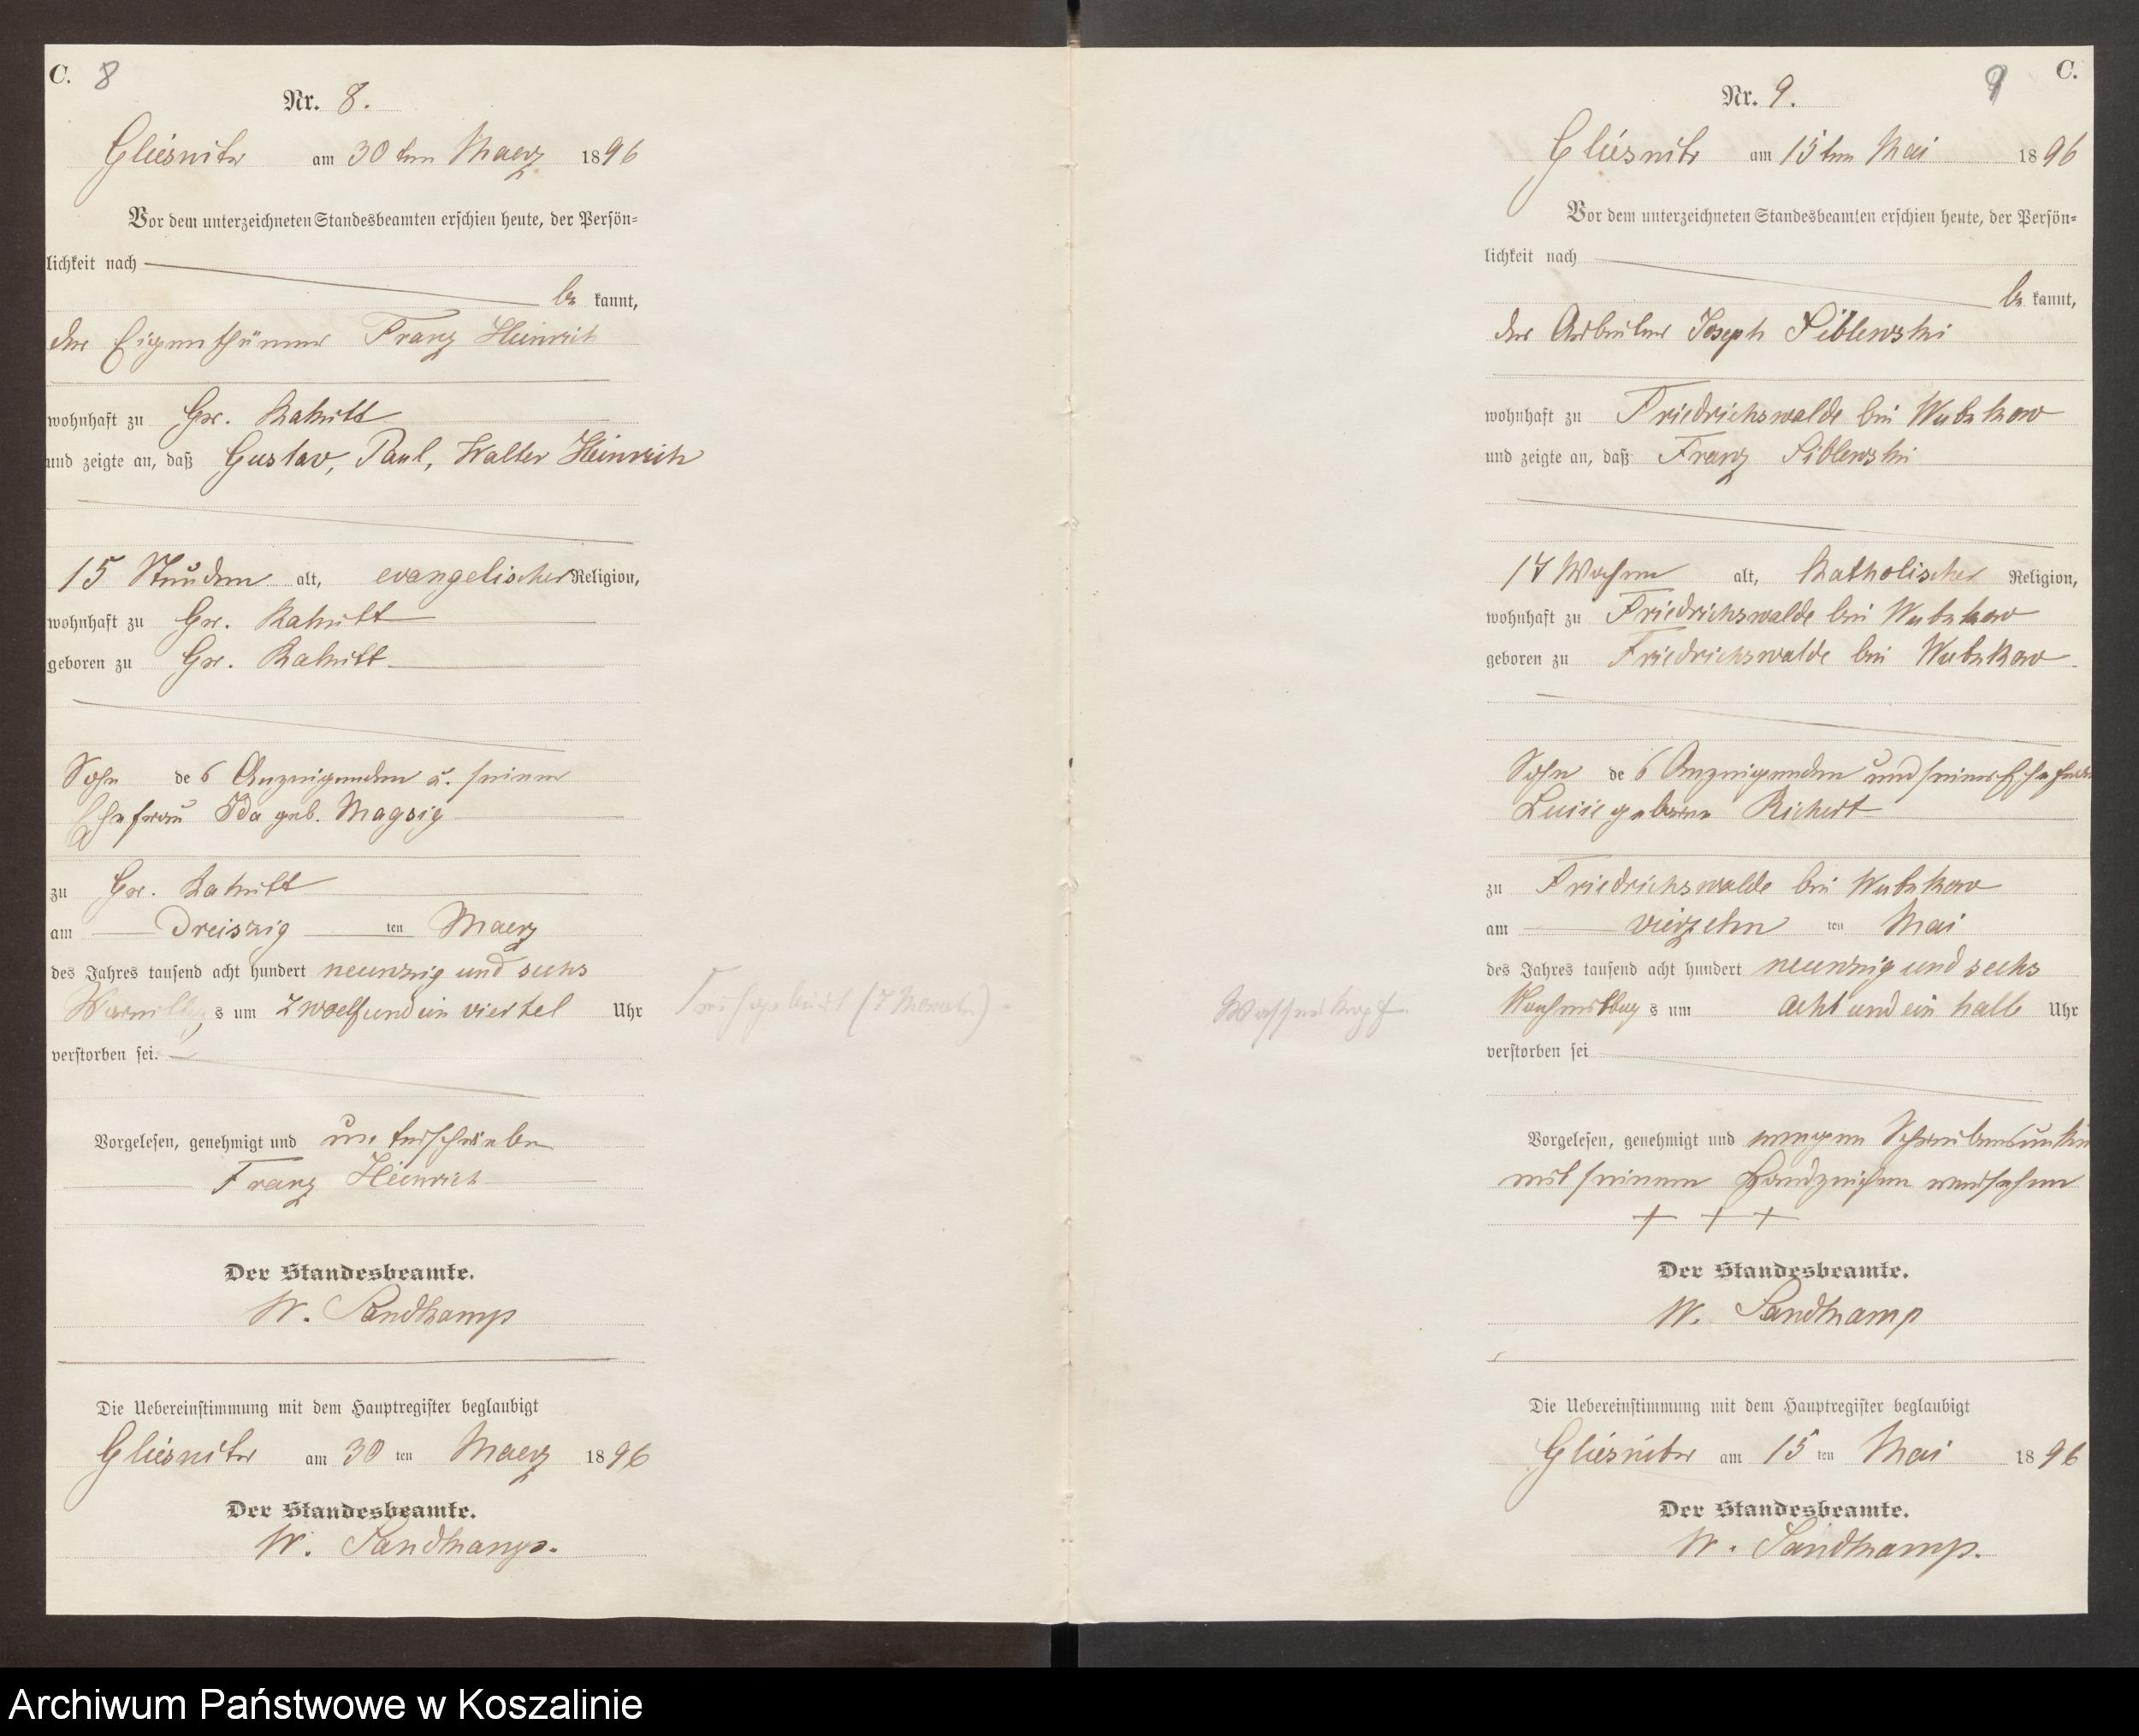 C. 8
Nr. 8.
Gliesnitz am 30 ten Maerz 1896
Vor dem unterzeichneten Standesbeamten erschien heute, der Persön-
lichkeit nach
be kannt,
der Eigenthümer Franz Heinrich
wohnhaft zu Gr. Rakitt
und zeigte an, daß Gustav, Paul, Walter Heinrich
15 Stunden alt, evangelischer Religion,
wohnhaft zu Gr. Rakitt
geboren zu Gr. Rakitt
Sohn des Anzeigenden u. seiner
Ehefrau Ida geb. Magsig
zu Gr. Rakitt
am Dreiszig ten Maerz
des Jahres tausend acht hundert neunzig und sechs
Vormittags um zwoelf und ein viertel Uhr
verstorben sei.
Frühgeburt (7 Monate).
Vorgelesen, genehmigt und unterschrieben
Franz Heinrich
Der Standesbeamte.
W. Sandkamp
Die Uebereinstimmung mit dem Hauptregister beglaubigt
Gliesnitz am 30 ten Maerz 1896
Der Standesbeamte.
W. Sandkamp.
9 C.
Nr. 9.
Gliesnitz am 15 ten Mai 1896
Vor dem unterzeichneten Standesbeamten erschien heute, der Persön-
lichkeit nach
be kannt,
der Arbeiter Joseph Siblewski
wohnhaft zu Friedrichswalde bei Wutzkow
und zeigte an, daß Franz Siblewski
17 Wochen alt, Katholischer Religion,
wohnhaft zu Friedrichswalde bei Wutzkow
geboren zu Friedrichswalde bei Wutzkow
Sohn des Anzeigenden und seiner Ehefrau
Luise geborne Richert
zu Friedrichswalde bei Wutzkow
am vierzehn ten Mai
des Jahres tausend acht hundert neunzig und sechs
Nachmittags um acht und ein halb Uhr
verstorben sei
Wasserkopf.
Vorgelesen, genehmigt und wegen Schreibensunk
mit seinem Handzeichen versehen
+ + +
Der Standesbeamte.
W. Sandkamp
Die Uebereinstimmung mit dem Hauptregister beglaubigt
Gliesnitz am 15 ten Mai 1896
Der Standesbeamte.
W. Sandkamp.
Archiwum Państwowe w Koszalinie